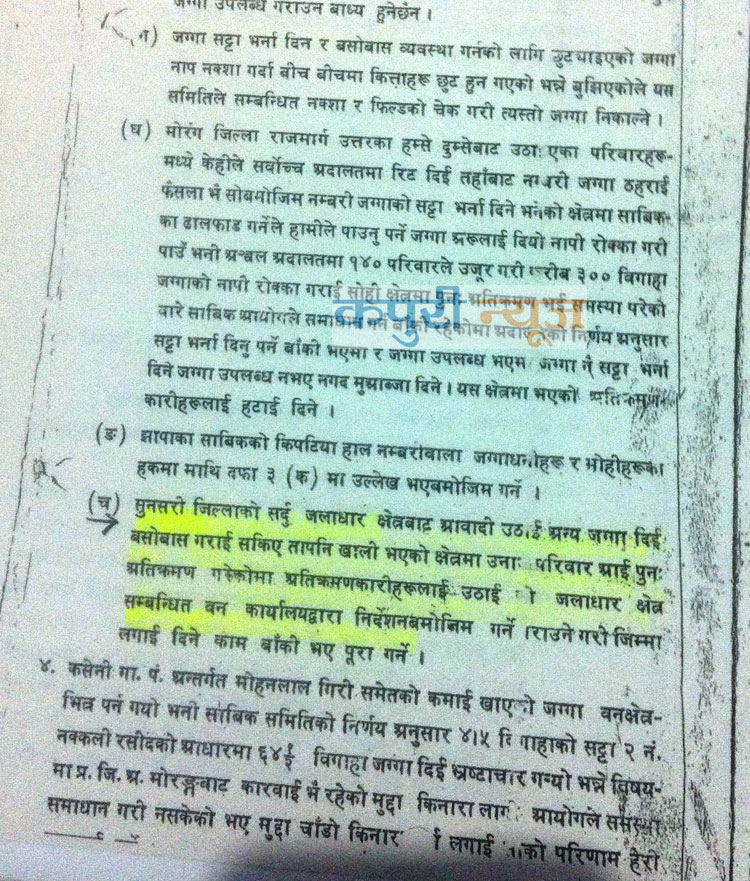 जग्गा उपलब्ध गराउन बाध्य हुनेछन ।
ग) जग्गा सट्टा भर्ना दिन र बसोबास व्यवस्था गर्नको लागि छुटयाइएको जग्गा
नाप नक्शा गर्दा बीच बीचमा कित्ताहरू छुट हुन गएको भन्ने बुझिएकोले यस
समितिले सम्बन्धित नक्शा र फिल्डको चेक गरी त्यस्तो जग्गा निकाल्ने ।
(घ) मोरंग जिल्ला राजमार्ग उत्तरका हम्से दुम्सेबाट उठाइएका परिवारहरू-
मध्ये केहीले सर्वोच्च अदालतमा रिट दिई तहाँबाट नम्बरी जग्गा ठहराई
फैसला भै सोबमोजिम नम्बरी जग्गाको सट्टा भर्ना दिने भनेको क्षेत्रमा साबिक-
का ढालफाड गर्नेले हामीले पाउनु पर्ने जग्गा अरूलाई दियो नापी रोक्का गरी
पाउँ भनी अञ्चल अदालतमा १४० परिवारले उजूर गरी करीब ३०० विगाहा
जग्गाको नापी रोक्का गराई सोही क्षेत्रमा पुनः अतिक्रमण भई समस्या परेको
वारे साबिक आयोगले समाधान गर्न बाँकी रहेकोमा अदालतको निर्णय अनुसार
सट्टा भर्ना दिनु पर्ने बाँकी भएमा र जग्गा उपलब्ध भएमा जग्गा नै सट्टा भर्ना
दिने जग्गा उपलब्ध नभए नगद मुआब्जा दिने । यस क्षेत्रमा भएको अतिक्रमण-
कारीहरूलाई हटाई दिने ।
(ङ) झापाका साबिकको किपटिया हाल नम्बरीवाला जग्गाधनीहरू र मोहीहरूका
हकमा माथि दफा ३ (क) मा उल्लेख भएबमोजिम गर्ने ।
(च) सुनसरी जिल्लाको सर्दु जलाधार क्षेत्रबाट आवादी उठाई अन्य जग्गा दिई
बसोबास गराई सकिए तापनि खाली भएको क्षेत्रमा उनै परिवार आई पुनः
अतिक्रमण गरेकोमा अतिक्रमणकारीहरूलाई उठाई जलाधार क्षेत्र
सम्बन्धित वन कार्यालयद्वारा निर्देशनबमोजिम गर्ने ।राउने गरी जिम्मा
लगाई दिने काम बाँकी भए पूरा गर्ने ।
४. कसेनी गा. पं. अन्तर्गत मोहनलाल गिरी समेतको कमाई खाएको जग्गा वनक्षेत्र-
भित्र पर्न गयो भनी साबिक समितिको निर्णय अनुसार ४।५ विगाहाको सट्टा २ नं.
नक्कली रसीदको आधारमा विगाहा जग्गा दिई भ्रष्टाचार गर्‍यो भन्ने विषय-
मा प्र. जि. अ. मोरङ्गबाट कारवाई भै रहेको मुद्दा किनारा आयोगले समस्या
समाधान गरी नसकेको भए मुद्दा चाँडो लगाई परिणाम हेरी
कपुरी न्यूज